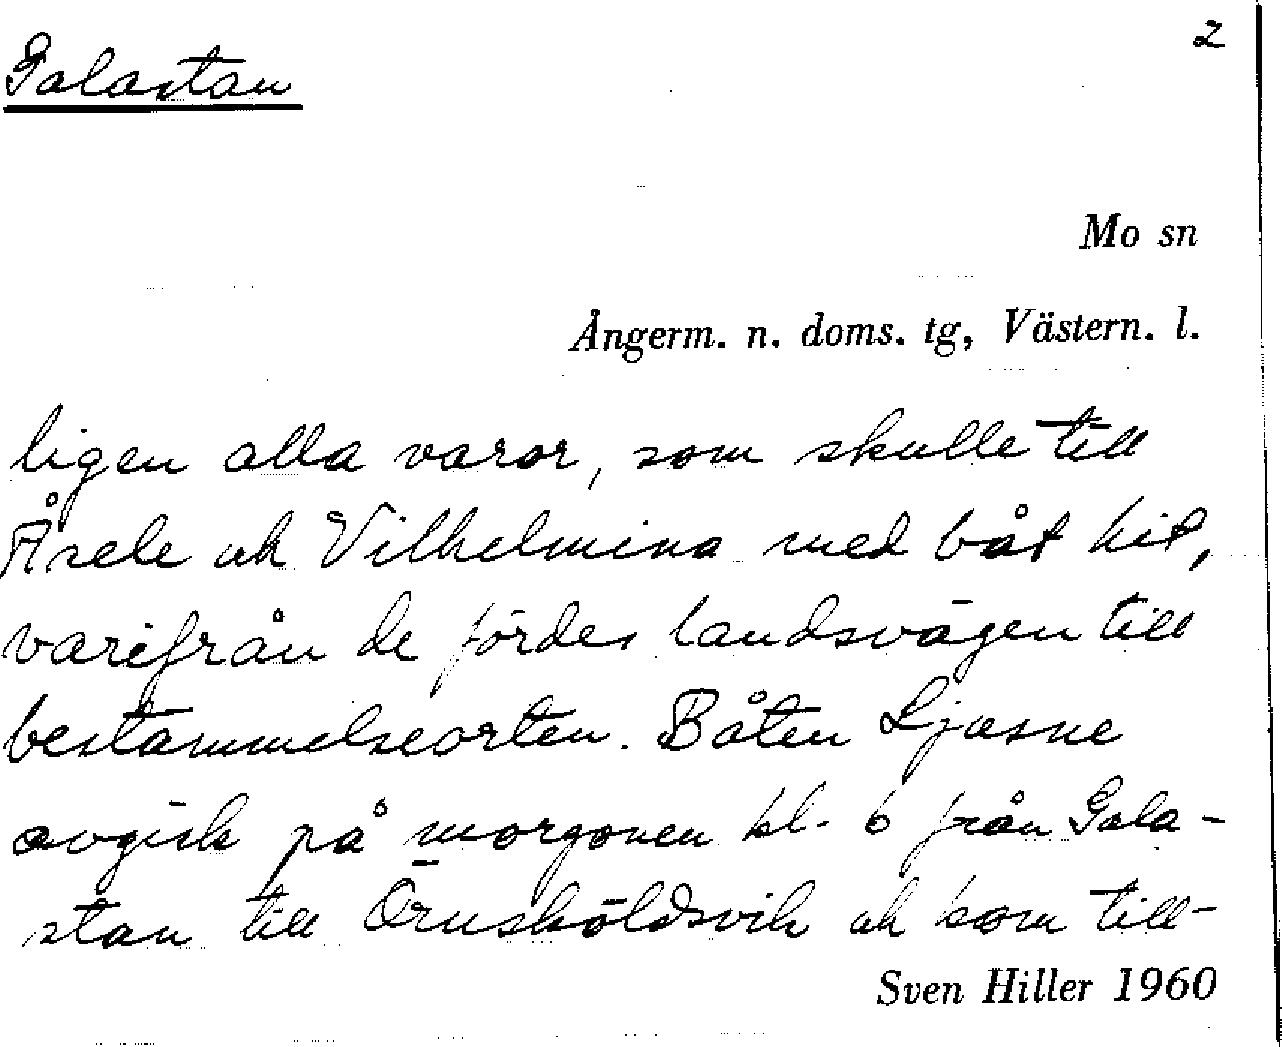 Galastan
2
Mo sn
Ångerm. n. doms. tg, Västern. l.
ligen alla varor, som skulle till
Åsele och Vilhelmina med båt hit,
varifrån de fördes landsvägen till
bestämmelseorten. Båten Ljusne
avgick på morgonen kl. 6 från Gala-
stan till Örnsköldsvik och kom till-
Sven Hiller 1960